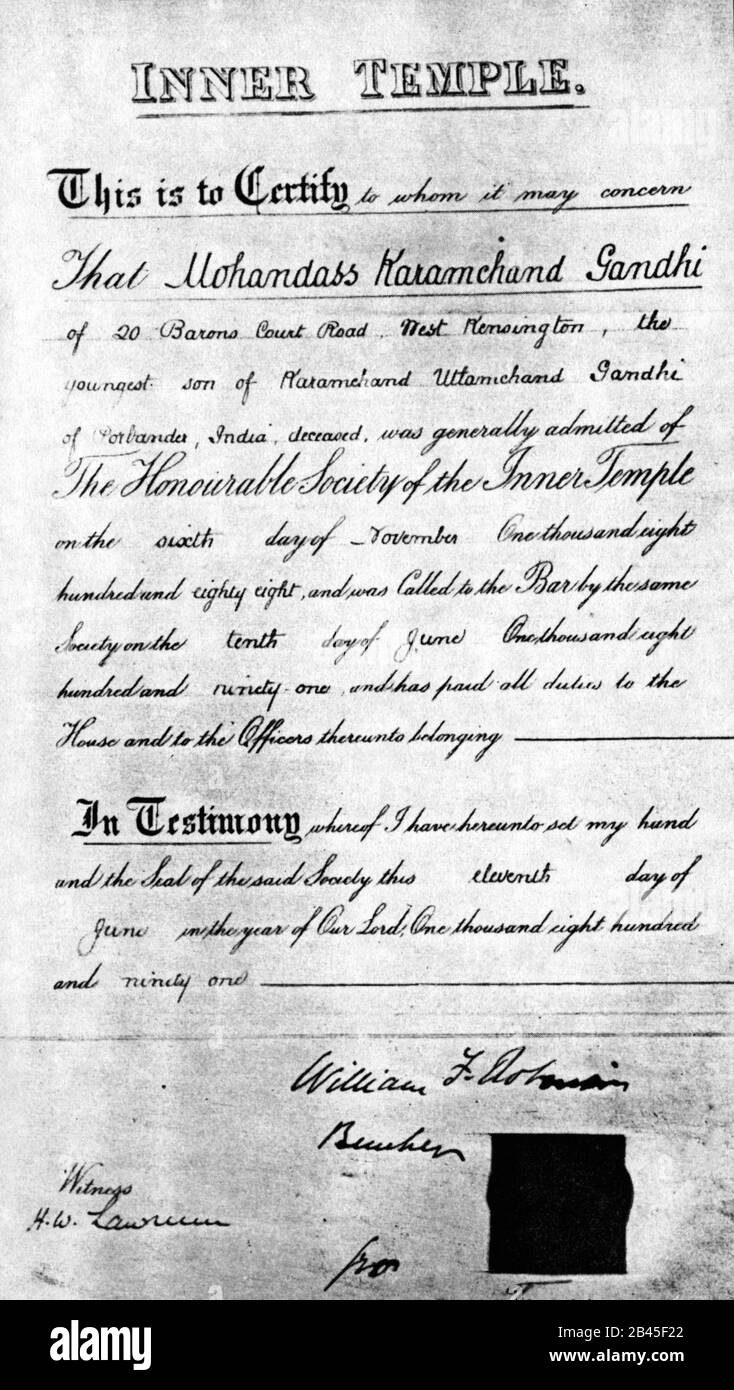 INNER TEMPLE.
This is to Certify to whom it may concern
That Mohandass Karamchand Gandhi
of 20 Barons Court Road, West Kensington, the
youngest son of Karamchand Uttamchand Gandhi
of Porbander, India, deceased, was generally admitted of
The Honourable Society of the Inner Temple
on the sixth day of November One thousand eight
hundred and eighty eight, and was Called to the Bar by the same
Society on the tenth day of June One thousand eight
hundred and ninety-one, and has paid all duties to the
House and to the Officers thereunto belonging
In Testimony whereof I have hereunto set my hand
and the Seal of the said Society this eleventh day of
June in the year of Our Lord, One thousand eight hundred
and ninety one
William F.
Bencher
Witness
H.W. Lawrence
alamy
alamy
Image ID: 2B45F22
www.alamy.com